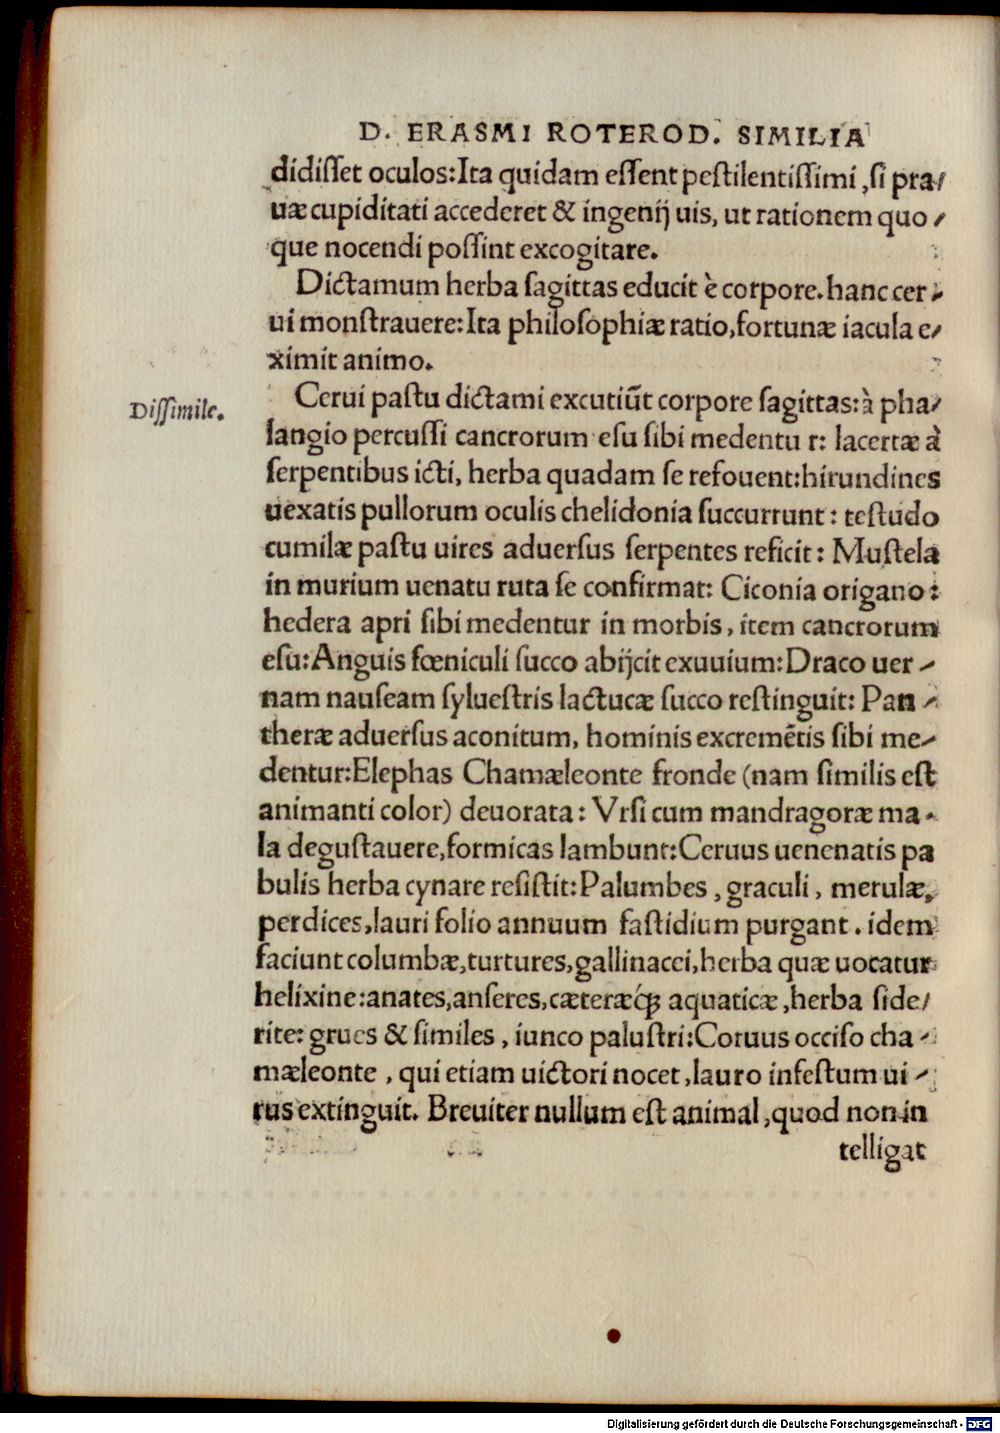 D. ERASMI ROTEROD. SIMILIA
didiſſet oculos:Ita quidam eſſent peſtilentiſſimi ,ſi pra/
uæ cupiditati accederet & ingenij uis, ut rationem quo/
que nocendi poſſint excogitare.
Dictamum herba ſagittas educit è corpore.hanc cer/
ui monſtrauere:Ita philoſophiæ ratio,fortunæ iacula e/
ximit animo.
Diſſimile.
Cerui paſtu dictami excutiūt corpore ſagittas:à pha/
langio percuſſi cancrorum eſu ſibi medentu r: lacertæ à
ſerpentibus icti, herba quadam ſe refouent:hirundines
uexatis pullorum oculis chelidonia ſuccurrunt: teſtudo
cumilæ paſtu uires aduerſus ſerpentes reficit: Muſtela
in murium uenatu ruta ſe confirmat: Ciconia origano:
hedera apri ſibi medentur in morbis, item cancrorum
eſu:Anguis fœniculi ſucco abijcit exuuium:Draco uer/
nam nauſeam ſylueſtris lactucæ ſucco reſtinguit: Pan/
theræ aduerſus aconitum, hominis excremētis ſibi me/
dentur:Elephas Chamæleonte fronde (nam ſimilis eſt
animanti color) deuorata: Vrſi cum mandragoræ ma/
la deguſtauere,formicas lambunt:Ceruus uenenatis pa
bulis herba cynare reſiſtit:Palumbes, graculi, merulæ,
perdices,lauri folio annuum faſtidium purgant. idem
faciunt columbæ,turtures,gallinacei,herba quæ uocatur
helixine:anates,anſeres,cæteræq́ꝫ aquaticæ,herba ſide/
rite: grues & ſimiles, iunco paluſtri:Coruus occiſo cha/
mæleonte, qui etiam uictori nocet,lauro infeſtum ui/
rus extinguit. Breuiter nullum eſt animal,quod non in
telligat
Digitalisierung gefördert durch die Deutsche Forschungsgemeinschaft - DFG